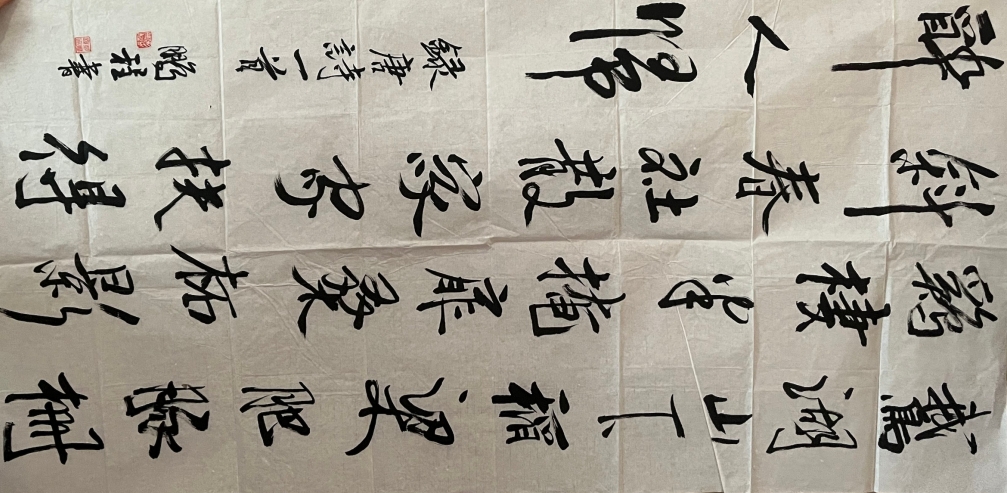 鵞湖山下稻粱肥豚柵
鷄棲對掩扉桑柘影
斜春社散家家扶得
醉人歸
錄唐詩一首
鵬程書